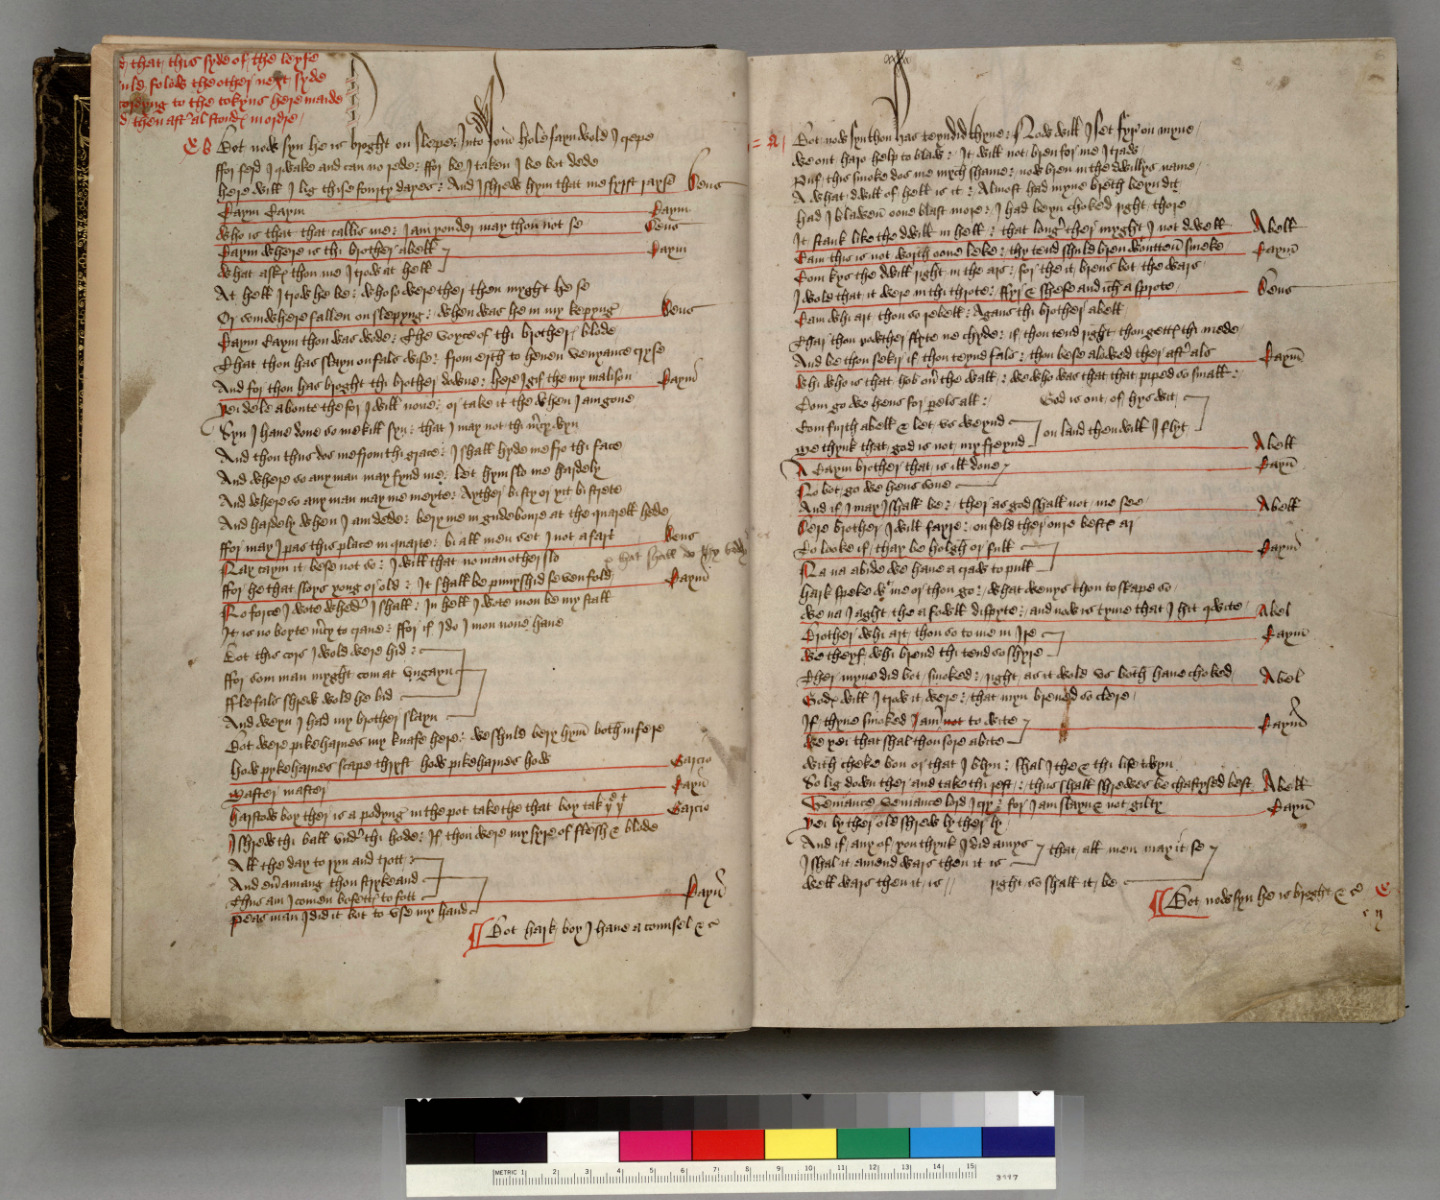 that this syde of the leyfe
uld folow the other next syde
cordyng to the tokyns here maide
then aft al stondȝ in ordre
Bot now syn he is broght on slepe / Into som hole fayn wold I crepe
ffor ferd I qwake and can no rede / ffor be I taken I be bot dede
here will I lig thise fourty dayes / And I shrew hym that me fyrst rayse
Deus
Caym Caym
Caym
who is that that callis me / I am yonder may thou not se
Deus
Caym where is thi brother abell
Caym
what askȝ thou me I trow at hell
At hell I trow he be / who so were ther then myght he se
Or somwhere fallen on slepyng / when was he in my kepyng
Deus
Caym Caym thou was wode / The voyce of thi brother blode
That thou has slayn on fals wise / from erth to heuen venyance cryse
And for thou has broght thi brother downe / here I gif the my malison
Caym
yei dele aboute the for I will none / or take it the when I am gone
Syn I haue done so mekill syn / that I may not thi mcy wyn
And thou thus dos me from thi grace / I shall hyde me fro thi face
And where so any man may fynd me / let hym slo me hardely
And where so any man may me meyte / Ayther bi sty or yit bi strete
And hardely when I am dede / bery me in gudeboure at the quarell hede
ffor may I pas this place in quarte / bi all men set I not a fart
Deus
Nay caym it bese not so / I will that no man other slo
ffor he that sloys yong or old / It shall be punyshid sevenfold
Caym
No force I wote wheder I shall / In hell I wote mon be my stall
It is no boyte mcy to craue / ffor if I do I mon none haue
Bot this cors I wold were hid
ffor som man myght com at vngayn
ffle fals shrew wold he bid
And weyn I had my brother slayn
Bot were pikeharnes my knafe here / we shuld bery hym both in fere
how pykeharnes scape thryft how pikeharnes how
Garcio
Master master
Caym
harstow boy ther is a podyng in the pot take the that boy tak yͤ yᵗ
Garcio
I shrew thi ball vnder thi hode / If thou were my syre of flesh & blode
All the day to ryn and trott
And euer amang thou strykeand
Thus am I comen bofettȝ to fott
Caym
Peas man I did it bot to vse my hand
Bot hark boy I haue a counsel &c
Bot now syn thou has teyndid thyne / Now will I set fyr on myne
we out haro help to blaw / It will not bren for me I traw
Puf this smoke dos me mych shame / now bren in the dwillys name
A what dwill of hell is it / Almost had myne breth beyn dit
had I blawen oone blast more / I had beyn choked right thore
It stank like the dwill in hell / that longer ther myght I not dwell
Abell
Cam this is not worth oone leke / thy tend shuld bren woutten smoke
Caym
Com kys the dwill right in the ars / for the it brens bot the wars
I wold that it were in thi throte / ffyr & shefe and ich a sprote
Deus
Cam whi art thou so rebell / Agans thi brother abell
Thar thou nowther flyte ne chyde / if thou tend right thou gettȝ thi mede
And be thou sekir if thou teynd fals / thou bese alowed ther aft als
Caym
whi who is that hob ouer the wall / we who was that that piped so small
Com go we hens for pels all / God is out of hys wit
Com furth abell & let vs weynd
me thynk that god is not my freynd / on land then will I flyt
Abell
A Caym brother that is ill done
Caym
No bot go we hens sone
And if I may I shall be / ther as god shall not me see
Abell
Dere brother I will fayre / on feld ther oure bestȝ ar
To looke if thay be holgh or full
Caym
Na na abide we haue a craw to pull
hark speke wᵗ me or thou go / what wenys thou to skape so
we na I aght the a fowll dispyte / and now is tyme that I hit qwite
Abel
Brother whi art thou so to me in Ire
Caym
we theyf whi brend thi tend so shyre
Ther myne did bot smoked / right as it wold vs both haue choked
Abel
Godȝ will I trow it were / that myn brened so clere
If thyne smoked am I to wite
Caym
we yei that shal thou sore abite
with cheke bon or that I blyn / shal I the & thi life twyn
So lig down ther and take thi rest / thus shall shrewes be chastysed best
Abell
Veniance veniance lord I cry / for I am slayn & not gilty
Caym
yei ly ther old shrew ly ther ly
And if any of you thynk I did amys
I shal it amend wars then it is / that all men may it se
well wars then it is / right so shall it be
Bot now syn he is broght &c